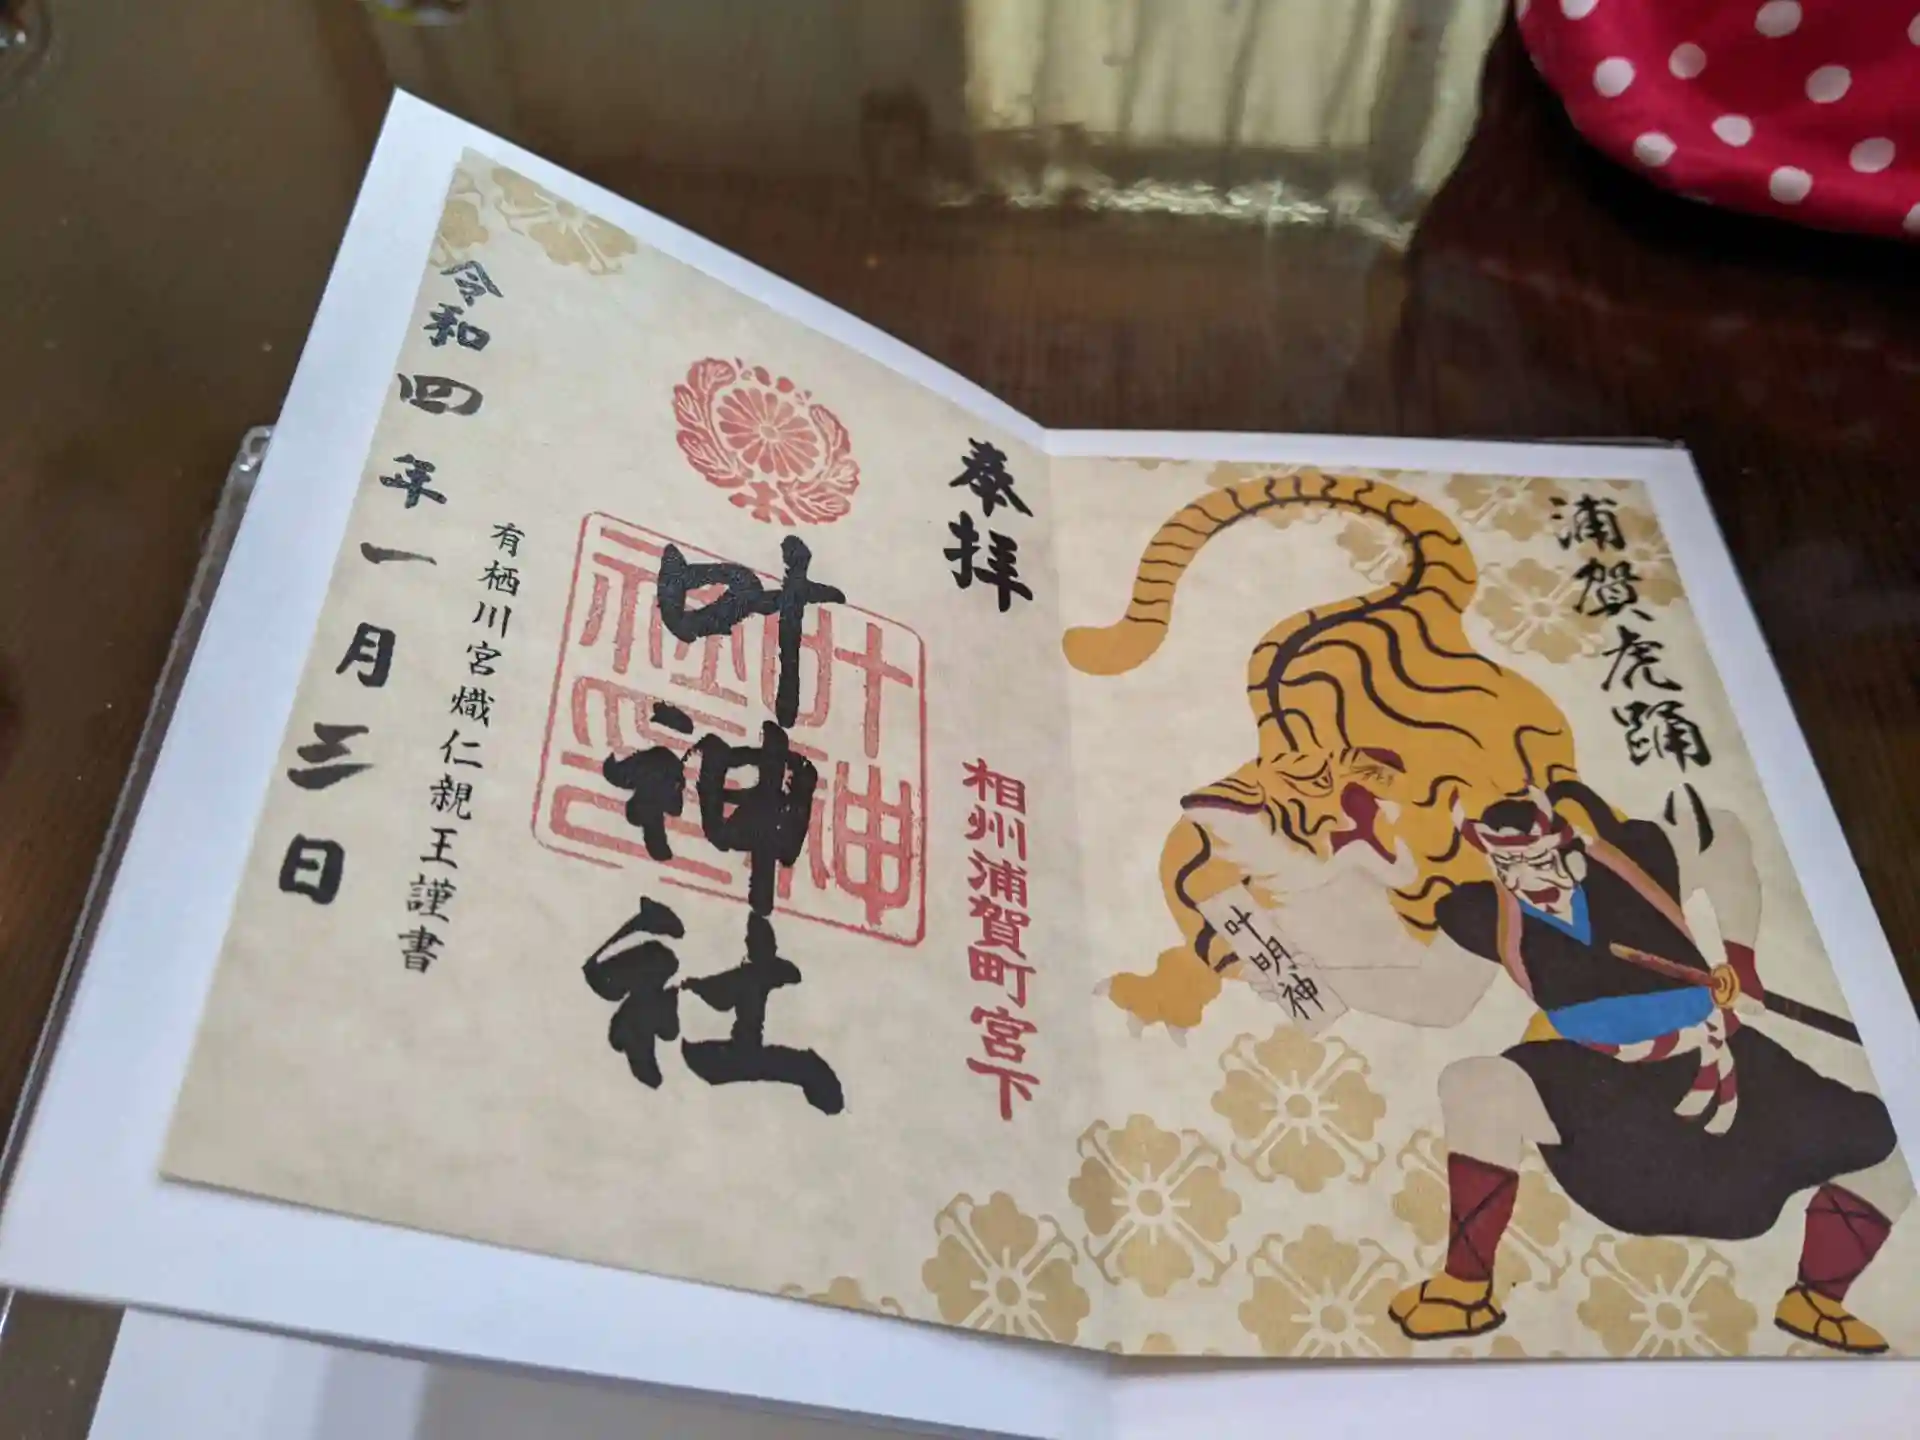 浦賀虎踊り
叶明神
奉拝
相州浦賀町宮下
叶神社
叶神社印
有栖川宮熾仁親王謹書
令和四年一月三日